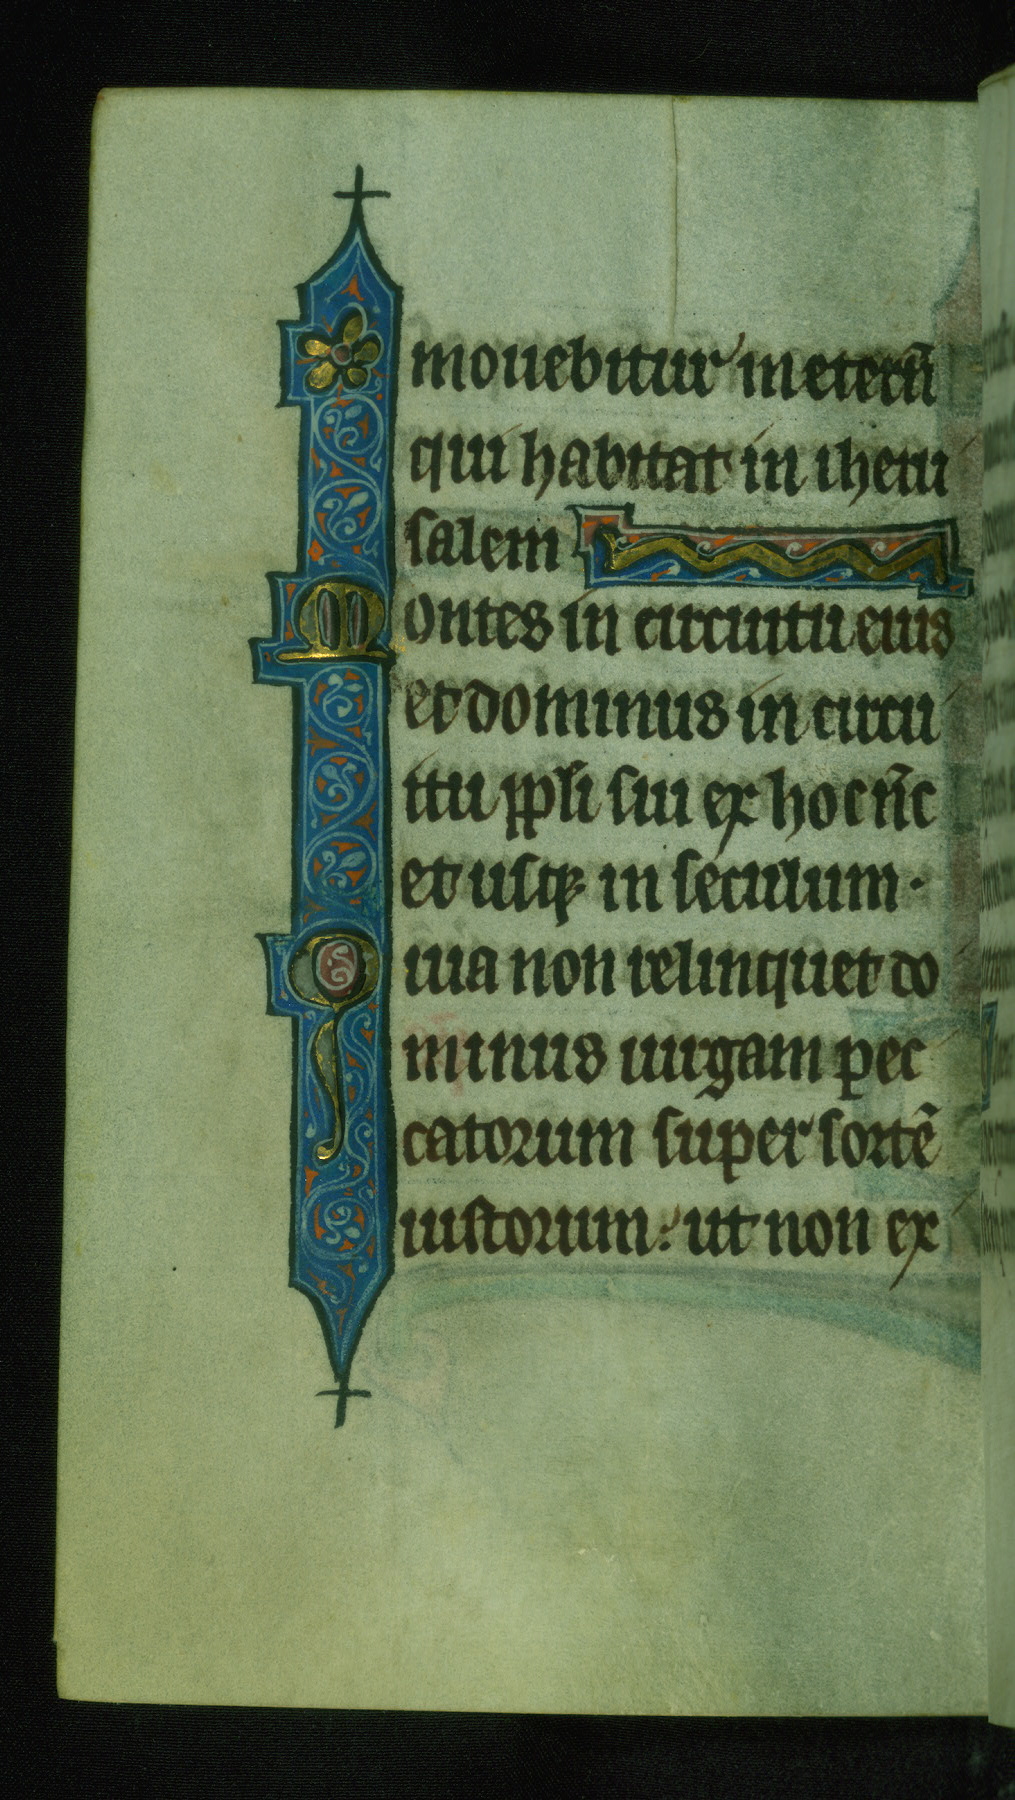 mouebitur in etern̄
qui habitat in iheru
salem
Montes in circuitu eius
et dominus in circu
itu pp̄li sui ex hoc nc̄
et usqꝫ in seculum ·
Quia non relinquet do
minus uirgam pec
catorum super sortē
iustorum : ut non ex